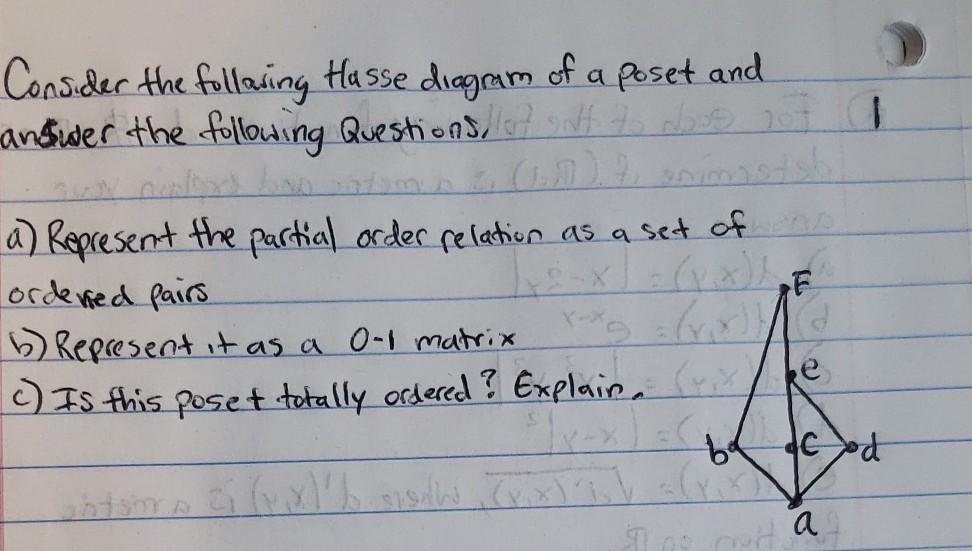 Consider the following Hasse diagram of a poset and
answer the following Questions.
1
a) Represent the partial order relation as a set of
ordered pairs
b) Represent it as a 0-1 matrix
c) Is this poset totally ordered? Explain.
F
e
b
c
d
a